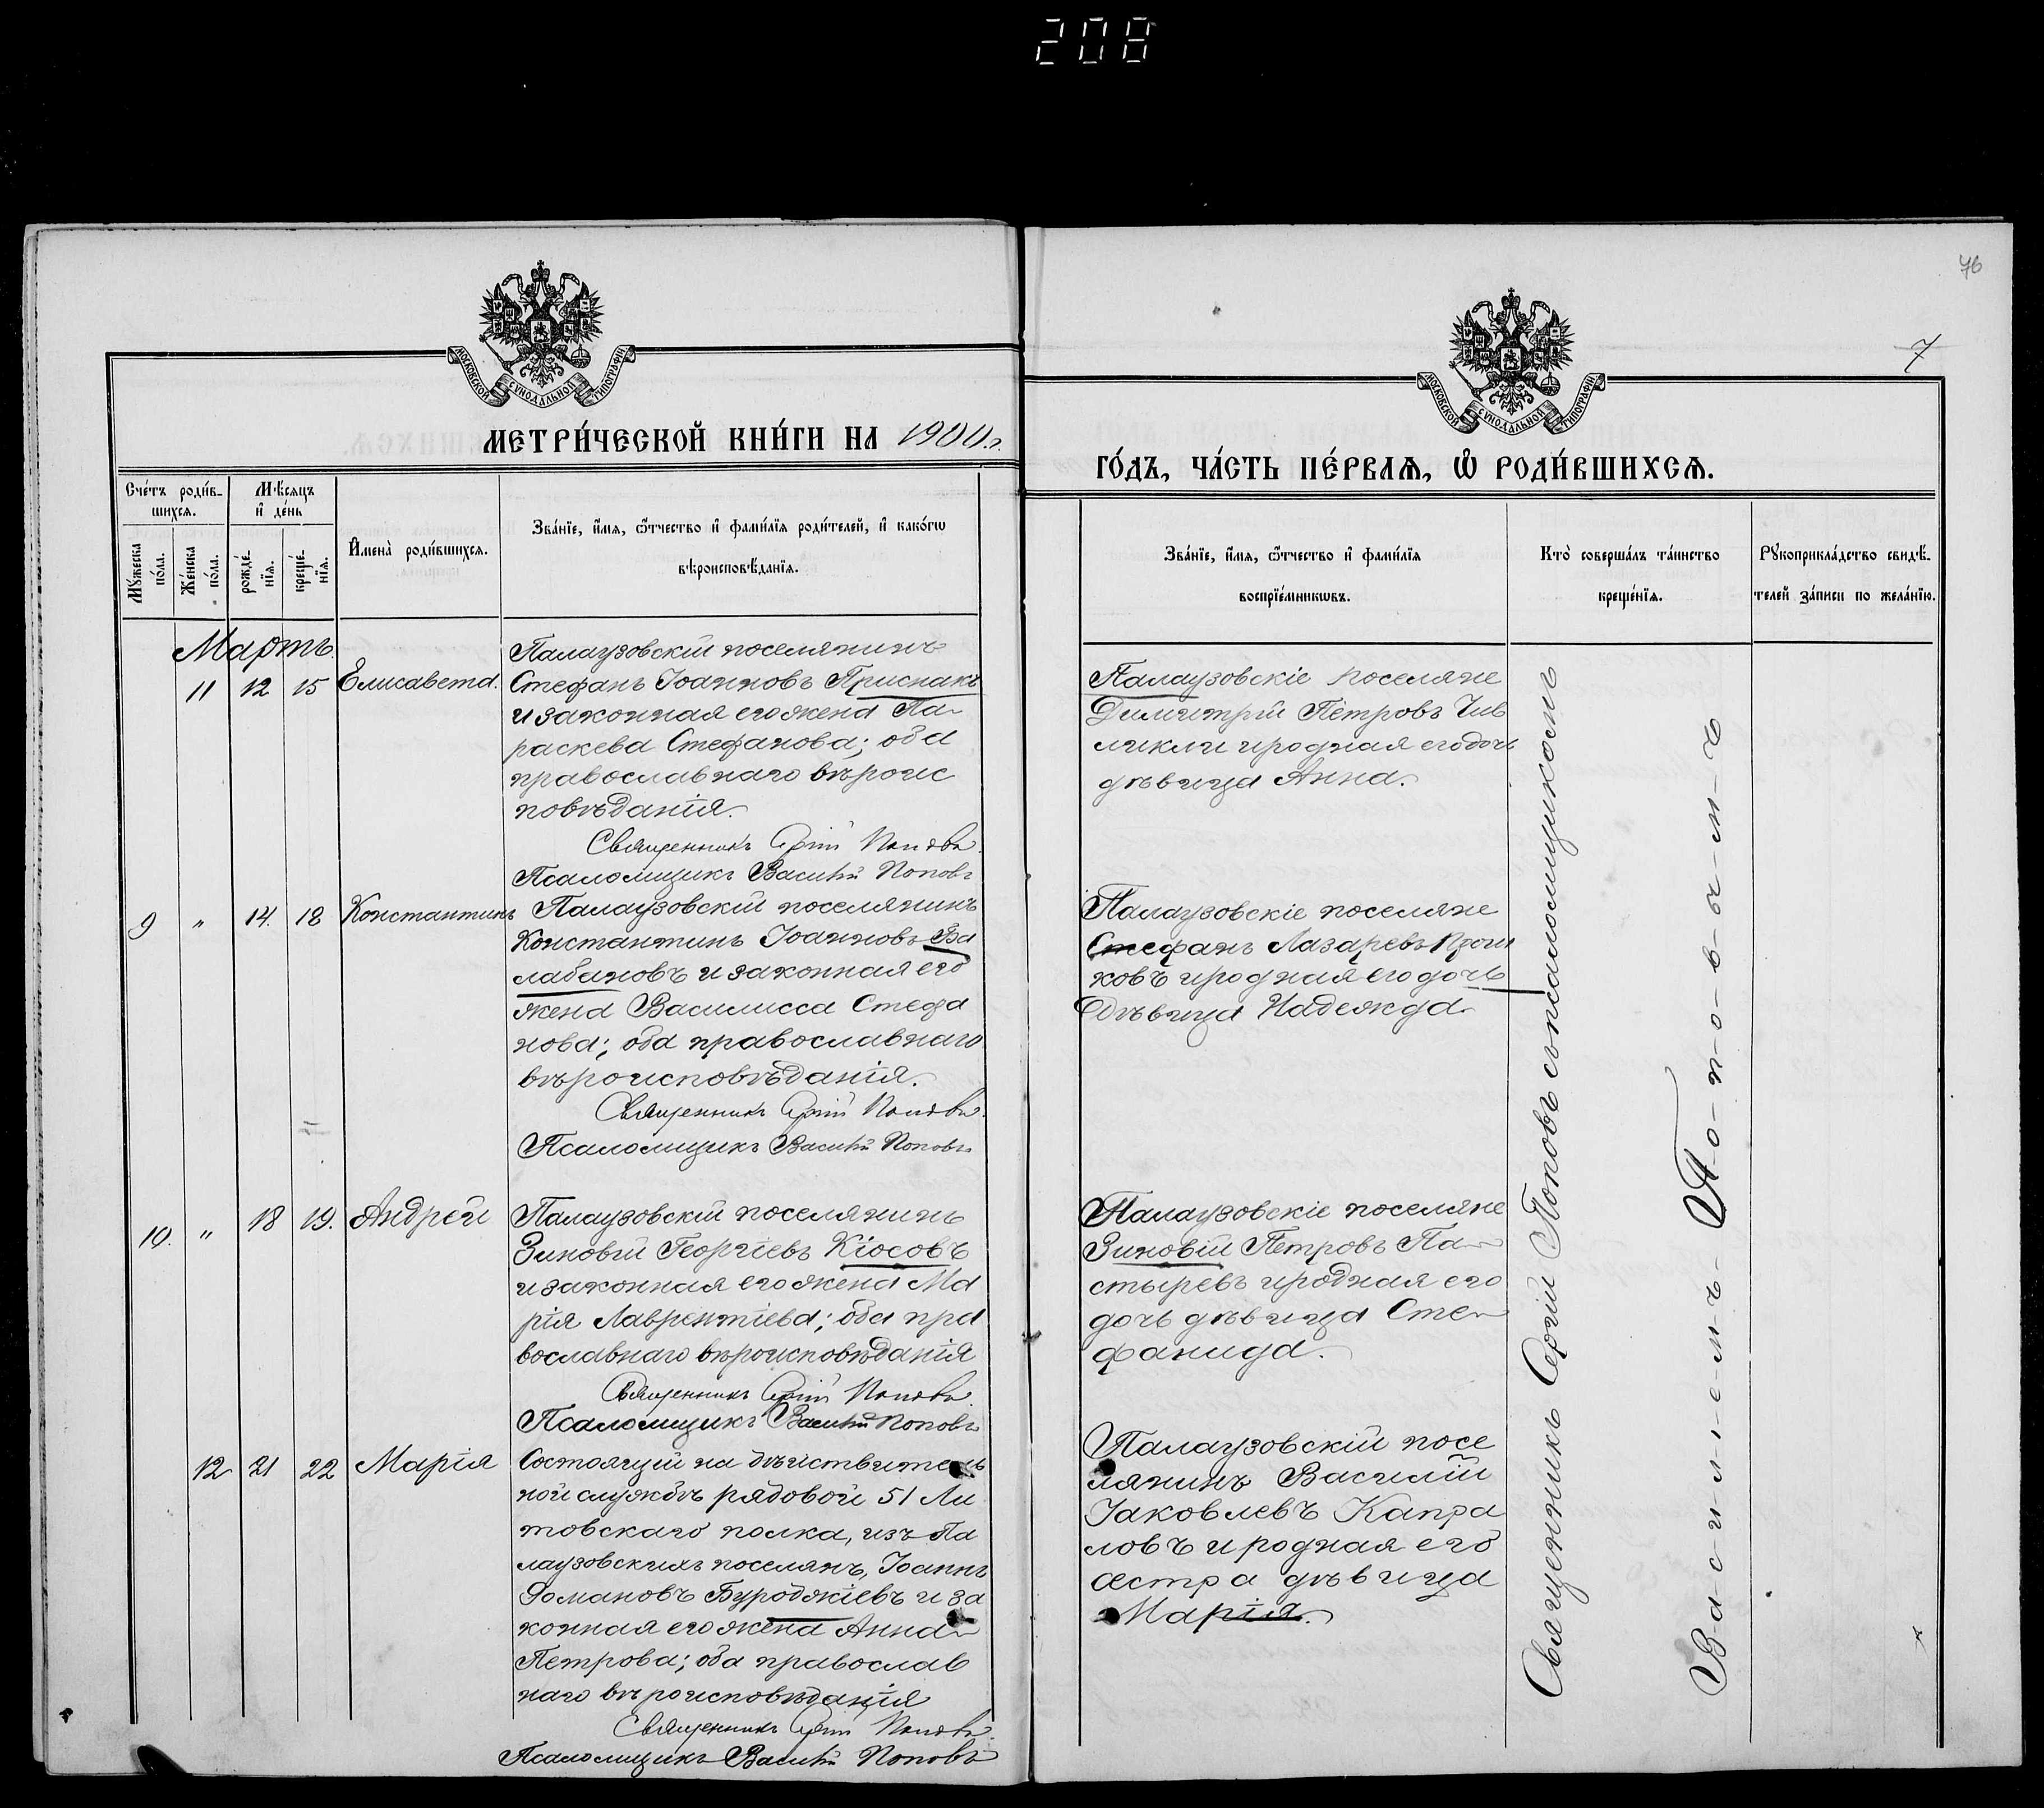 208
76
7
МОСКОВСКОЙ СѴНОДАЛЬНОЙ ТИПОГРАФІИ
МОСКОВСКОЙ СѴНОДАЛЬНОЙ ТИПОГРАФІИ
МЕТРИ́ЧЕСКОЙ КНИ́ГИ НА 1900 г.
ГО́ДЪ, ЧА́СТЬ ПЕ́РВАѦ, Ѽ РОДИ́ВШИХСѦ.
Сче́тъ роди́в-
шихсѧ.
Мꙋ́жеска по́ла.
Же́нска по́ла.
Мѣ́сѧцъ и҆ де́нь
рожде́-нїѧ.
креще́-нїѧ.
И҆мена̀ роди́вшихсѧ.
Зва́нїе, и҆́мѧ, ѻ҆́тчество и҆ фами́лїѧ роди́телей, и҆ како́гѡ
вѣроисповѣ́данїѧ.
Зва́нїе, и҆́мѧ, ѻ҆́тчество и҆ фами́лїѧ
воспрїе́мникѡвъ.
Кто̀ соверша́лъ та́инство
креще́нїѧ.
Рꙋкоприкла́дство свидѣ́-
телей за́писи по жела́нїю.
Мартъ.
11 12 15 Елисавета.
Палаузовскій поселянинъ
Стефанъ Іоанновъ Приснакъ
и законная его жена Па-
раскева Стефанова; оба
православнаго вѣроис
повѣданія.
Священникъ Сергій Поповъ.
Псаломщикъ Василій Поповъ
Палаузовскіе поселяне
Димитрій Петровъ Чив
ликли и родная его дочь
дѣвица Анна.
9 " 14. 18 Константинъ
Палаузовскій поселянинъ
Константинъ Іоанновъ Ба
лабановъ и законная его
жена Василисса Стефа
нова; оба православнаго
вѣроисповѣданія.
Священникъ Сергій Поповъ.
Псаломщикъ Василій Поповъ
Палаузовскіе поселяне
Стефанъ Лазаревъ
ковъ и родная его дочь
дѣвица Надежда
10. " 18 19. Андрей
Палаузовскій поселянинъ
Зиновій Георгіевъ Кіосовъ
и законная его жена Ма
рія Лаврентіева; оба пра
вославнаго вѣроисповѣданія
Священникъ Сергій Поповъ.
Псаломщикъ Василій Поповъ
Палаузовскіе поселяне
Зиновій Петровъ Па-
стыревъ и родная его
дочь дѣвица Сте-
фанида.
12 21 22 Марія
Состоящій на дѣйствитель
ной службѣ рядовой 51 Ли
товскаго полка, изъ Па
лаузовскихъ поселянъ, Іоаннъ
Романовъ Буроджіевъ и за
конная его жена Анна
Петрова; оба православ
наго вѣроисповѣданія
Священникъ Сергій Поповъ.
Псаломщикъ Василій Поповъ
Палаузовскій посе
лянинъ Василій
Іаковлевъ Капра
ловъ и родная его
сестра дѣвица
Марія.
Священникъ Сергій Поповъ съ псаломщикомъ
В-а-с-и-л-і-е-м-ъ- П-о-п-о-в-ы-м-ъ